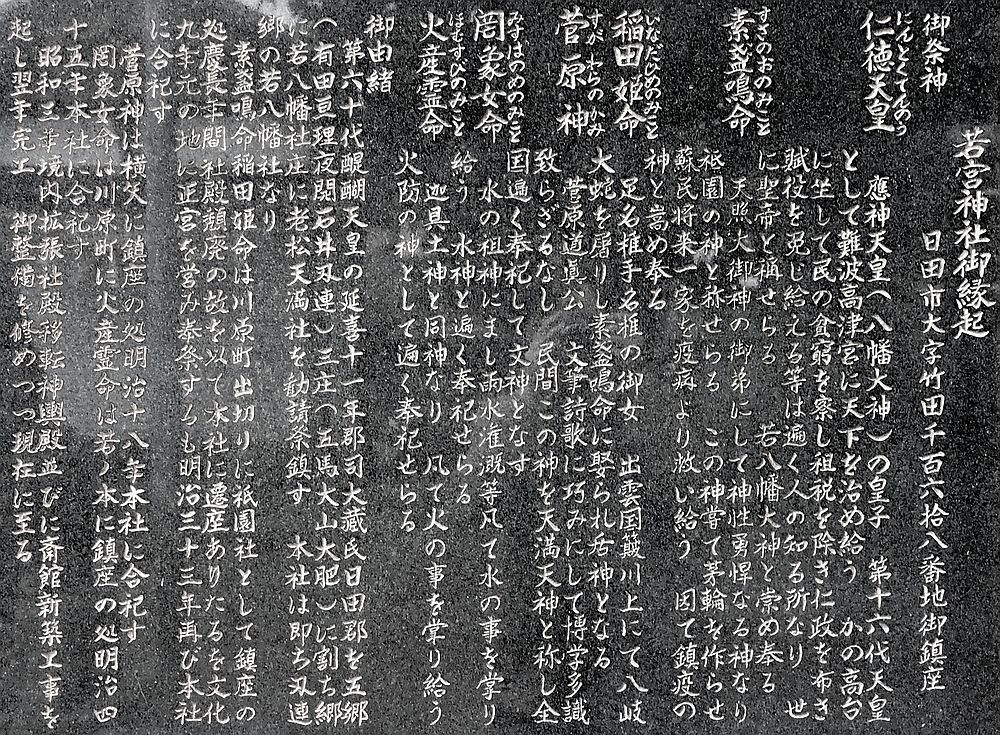 若宮神社御縁起
日田市大字竹田千百六拾八番地御鎮座
御祭神
にんとくてんのう
仁徳天皇
應神天皇(八幡大神)の皇子 第十六代天皇
として難波高津宮に天下を治め給う かの高台
に坐して民の貧窮を察し租税を除き仁政を布き
賦役を免じ給える等は遍く人の知る所なり 世
に聖帝と稱せらる 若八幡大神と崇め奉る
すさのおのみこと
素盞鳴命
天照大御神の御弟にして神性勇悍なる神なり
祗園の神と称せらる この神嘗て茅輪を作らせ
蘇民将来一家を疫病より救い給う 因て鎮疫の
神と嵩め奉る
いなだひめのみこと
稲田姫命
足名椎手名椎の御女 出雲国簸川上にて八岐
大蛇を屠りし素盞鳴命に娶られ后神となる
すがわらのかみ
菅原神
菅原道眞公 文筆詩歌に巧みにして博学多識
致らざるなし 民間この神を天満天神と称し全
国遍く奉祀して文神となす
みずはのめのみこと
罔象女命
水の祖神にまし雨水潅漑等凡て水の事を掌り
給う 水神と遍く奉祀せらる
ほむすびのみこと
火産霊命
迦具土神と同神なり 凡て火の事を掌り給う
火防の神として遍く奉祀せらる
御由緒
第六十代醍醐天皇の延喜十一年郡司大蔵氏日田郡を五郷
(有田亘理夜開石井刃連)三庄(五馬大山大肥)に割ち郷
に若八幡社座に老松天満社を勧請祭鎮す 本社は即ち刃連
郷の若八幡社なり
素盞鳴命稲田姫命は川原町出切りに祗園社として鎮座の
処慶長年間社殿頽廃の故を以て本社に遷座ありたるを文化
九年元の地に正宮を営み奉祭するも明治三十三年再び本社
に合祀す
菅原神は横矢に鎮座の処明治十八年本社に合祀す
罔象女命は川原町に火産霊命は若ノ本に鎮座の処明治四
十五年本社に合祀す
昭和三年境内拡張社殿移転神輿殿並びに斎館新築工事を
起し翌年完工 御整備を修めつつ現在に至る